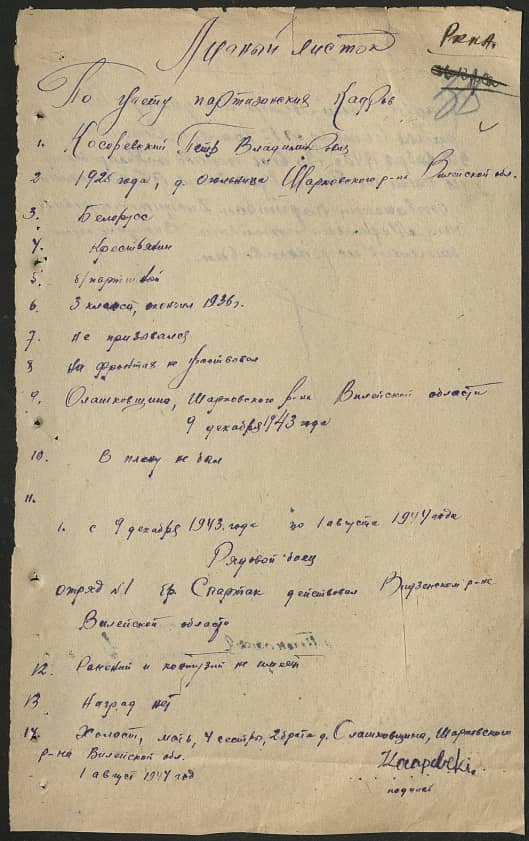 РККА.
Личный листок
По учету партизанских Кадров
1. Косаревский Петр Владимирович
2. 1925 года, д. Шарковского р-на Вилейской обл.
3. Белорусс
4. Крестьянин
5. б/партийный
6. 3 класса, окончил 1936 г.
7. не призывался
8 На фронтах не участвовал
9. Олашковщина, Шарковского р-на Вилейской области
9 декабря 1943 года
10. В плену не был
11.
1. с 9 декабря 1943 года по 1 августа 1944 года
Рядовой боец
отряд №1 бр. Спартак действовал Видзенском р-не
Вилейской области
12. Ранений и контузий не имеет
13 Наград нет
14. Холост, мать, 4 сестры, 2 брата д. Олашковщина, Шарковского
р-на Вилейской обл.
1 август 1944 год
Kasarevski
подпись